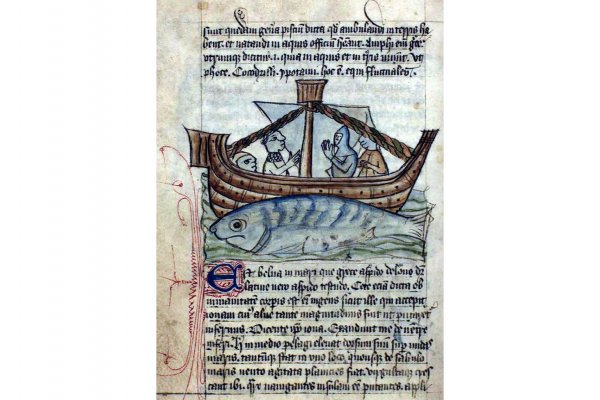 sunt quedam gen̄a pisciū dicta qđ ambulandi in terris ha
bent. et natandi in aquis officiū Amphi em̄
utrumque dicitur .i. qua in aquis et in tr̄is viuūt. Vt
phoce. Cocodrilli. ypotami. hoc ē. equi fluctuales.
Est belua in mari que grece aspido delone dr̄
latine vero aspido testudo. Cete etiā dicta ob
inmanitatem corpis est eī ingens sicut ille qui excepit
ionam cui' alu' tante magnitudinis fuit ut putaret
infernus. Dicente ip̄o iona. Exaudiuit me de uentre
inferi. in medio pelagi eleuat dorsum suū sup undas
maris. tantūque stat in uno loco. quousque de sabulo
maris vento agitata planicies fiat. cres
cant ibi. nauigantes insulam eē putantes. appli